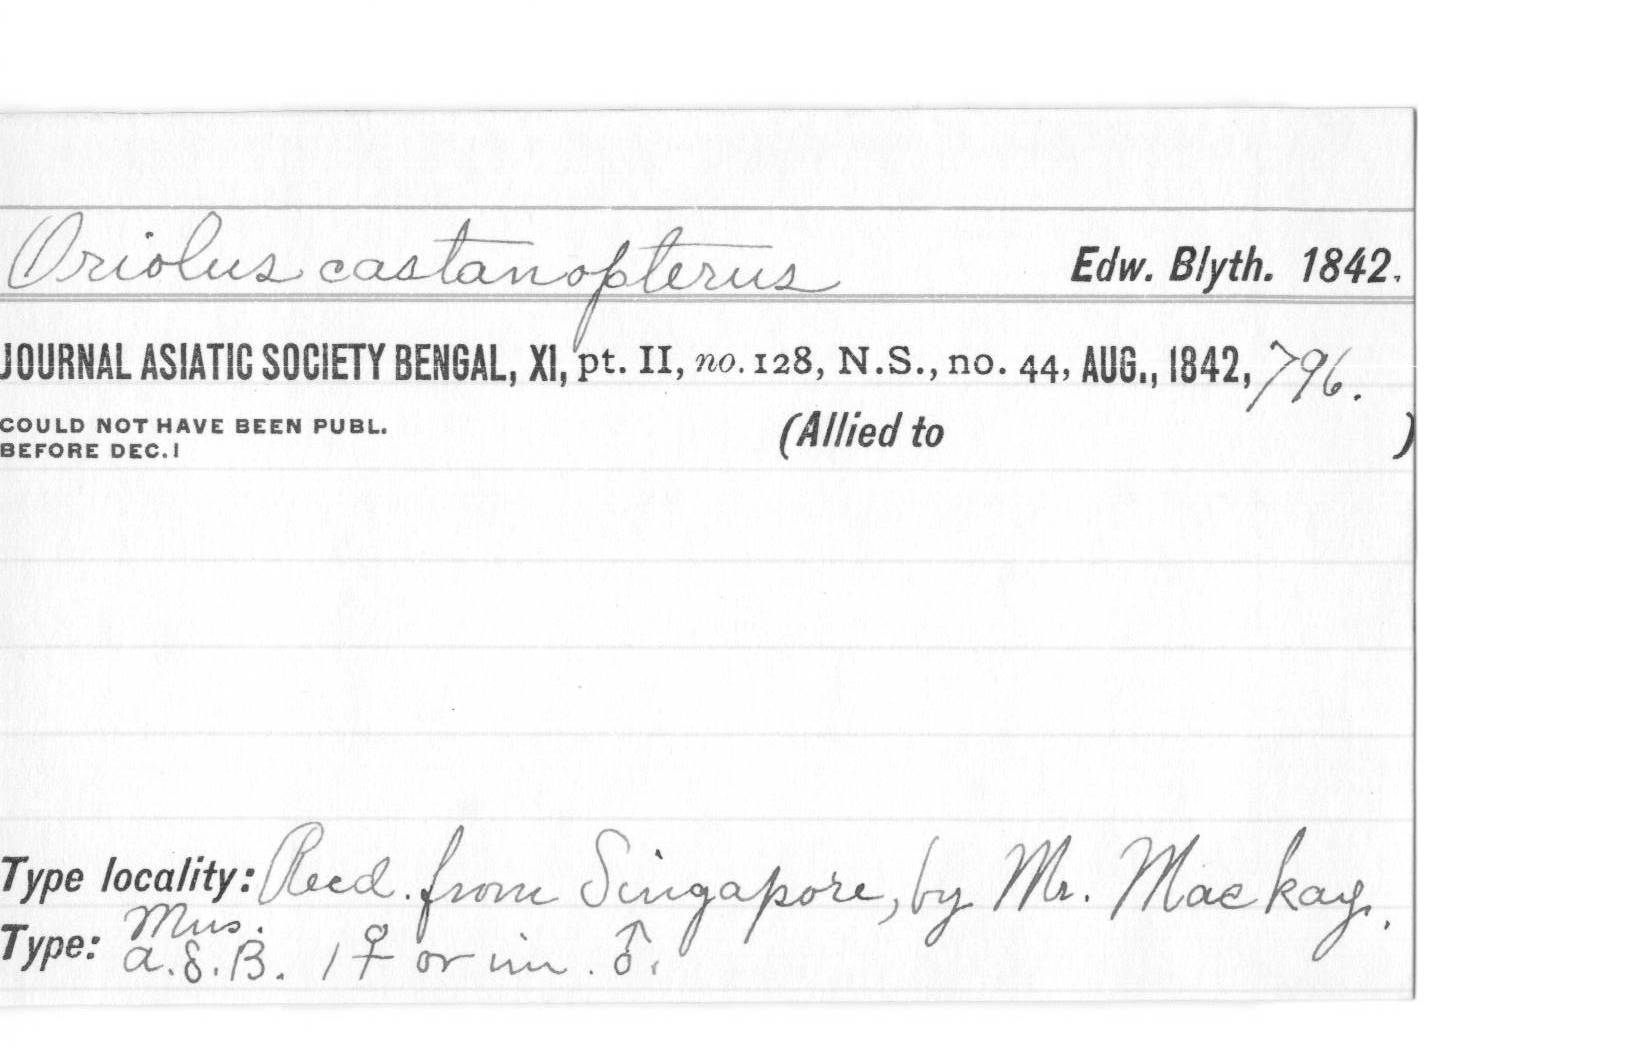 Oriolus castanopterus Edw. Blyth. 1842.
JOURNAL ASIATIC SOCIETY BENGAL, XI, pt. II, no. 128, N.S., no. 44, AUG., 1842, 796.
COULD NOT HAVE BEEN PUBL. (Allied to )
BEFORE DEC. 1
Type locality: Recd. from Singapore, by Mr. Mackay.
Mus.
Type: a.S.B. 1 ♀ or im. ♂.